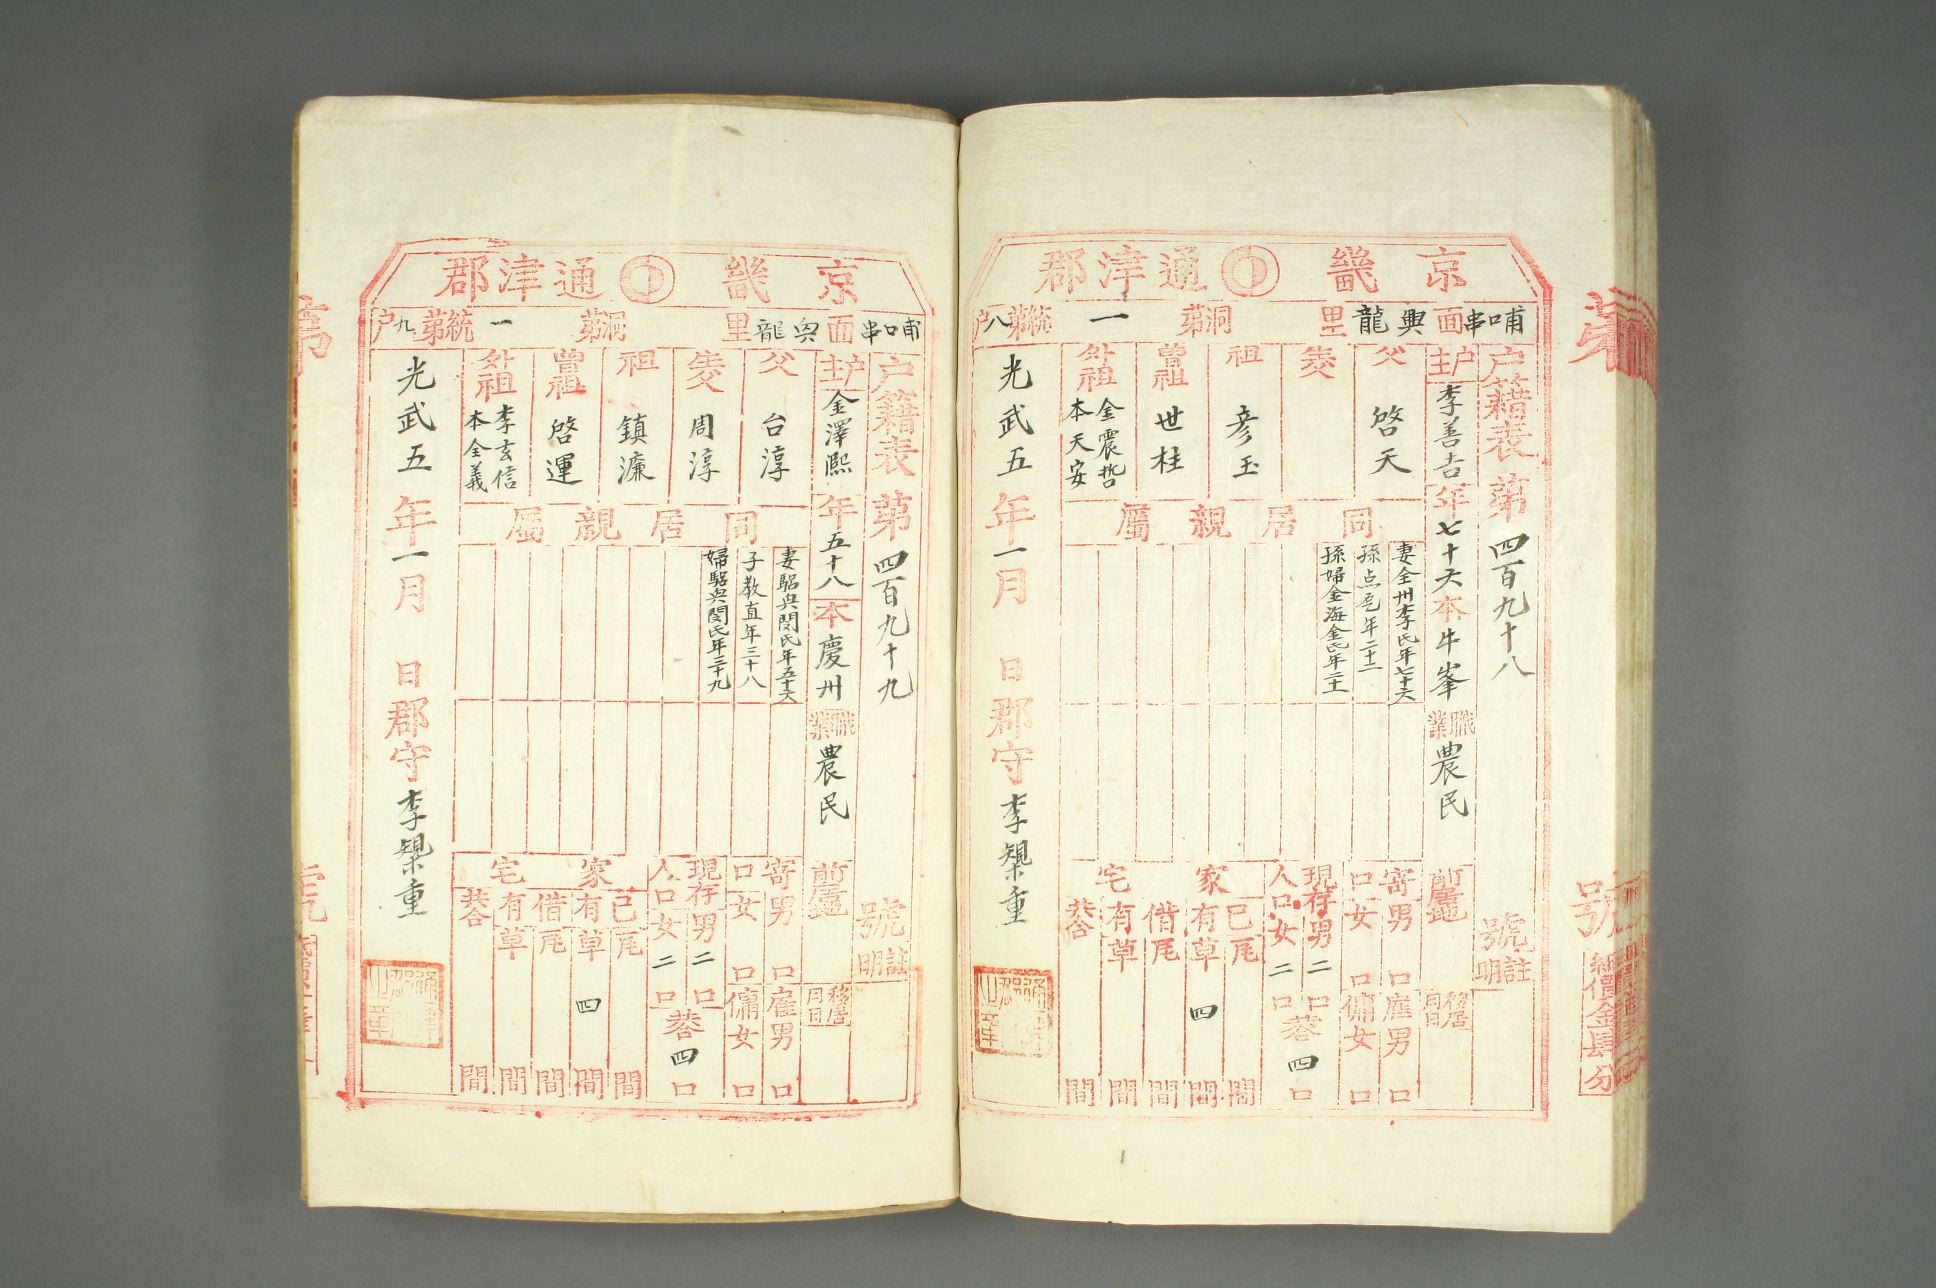 京畿 通津郡
哺口串面 興龍里 洞第 一統第八戶
戶籍表第四百九十八 號
戶主 李善吉 年七十六 本牛峯 職業 農民 前居地
父 啓天
養父
祖 彦玉
曾祖 世柱
外祖 金震哲 本天安
同居親屬
妻全州李氏年七十六
孫年二十二
孫婦金海金氏年二十
註明
移居月日
寄口 男 口 女 口
雇男 口 傭女 口
現存人口 男 二 口 女 二 口 共 四 口
家宅
已有 瓦 間 草 四 間
借有 瓦 間 草 間
共合 間
光武五年一月 日郡守李 重
號
新價金肆分
京畿 通津郡
哺口串面 興龍里 洞第 一統第九戶
戶籍表第四百九十九 號
戶主 金澤熙 年五十八 本慶州 職業 農民 前居地
父 台淳
養父 周淳
祖 鎮濂
曾祖 啓運
外祖 李玄信 本全義
同居親屬
妻驪興閔氏年五十六
子敎直年三十八
婦驪興閔氏年三十九
註明
移居月日
寄口 男 口 女 口
雇男 口 傭女 口
現存人口 男 二 口 女 二 口 共 四 口
家宅
已有 瓦 間 草 四 間
借有 瓦 間 草 間
共合 間
光武五年一月 日郡守李 重